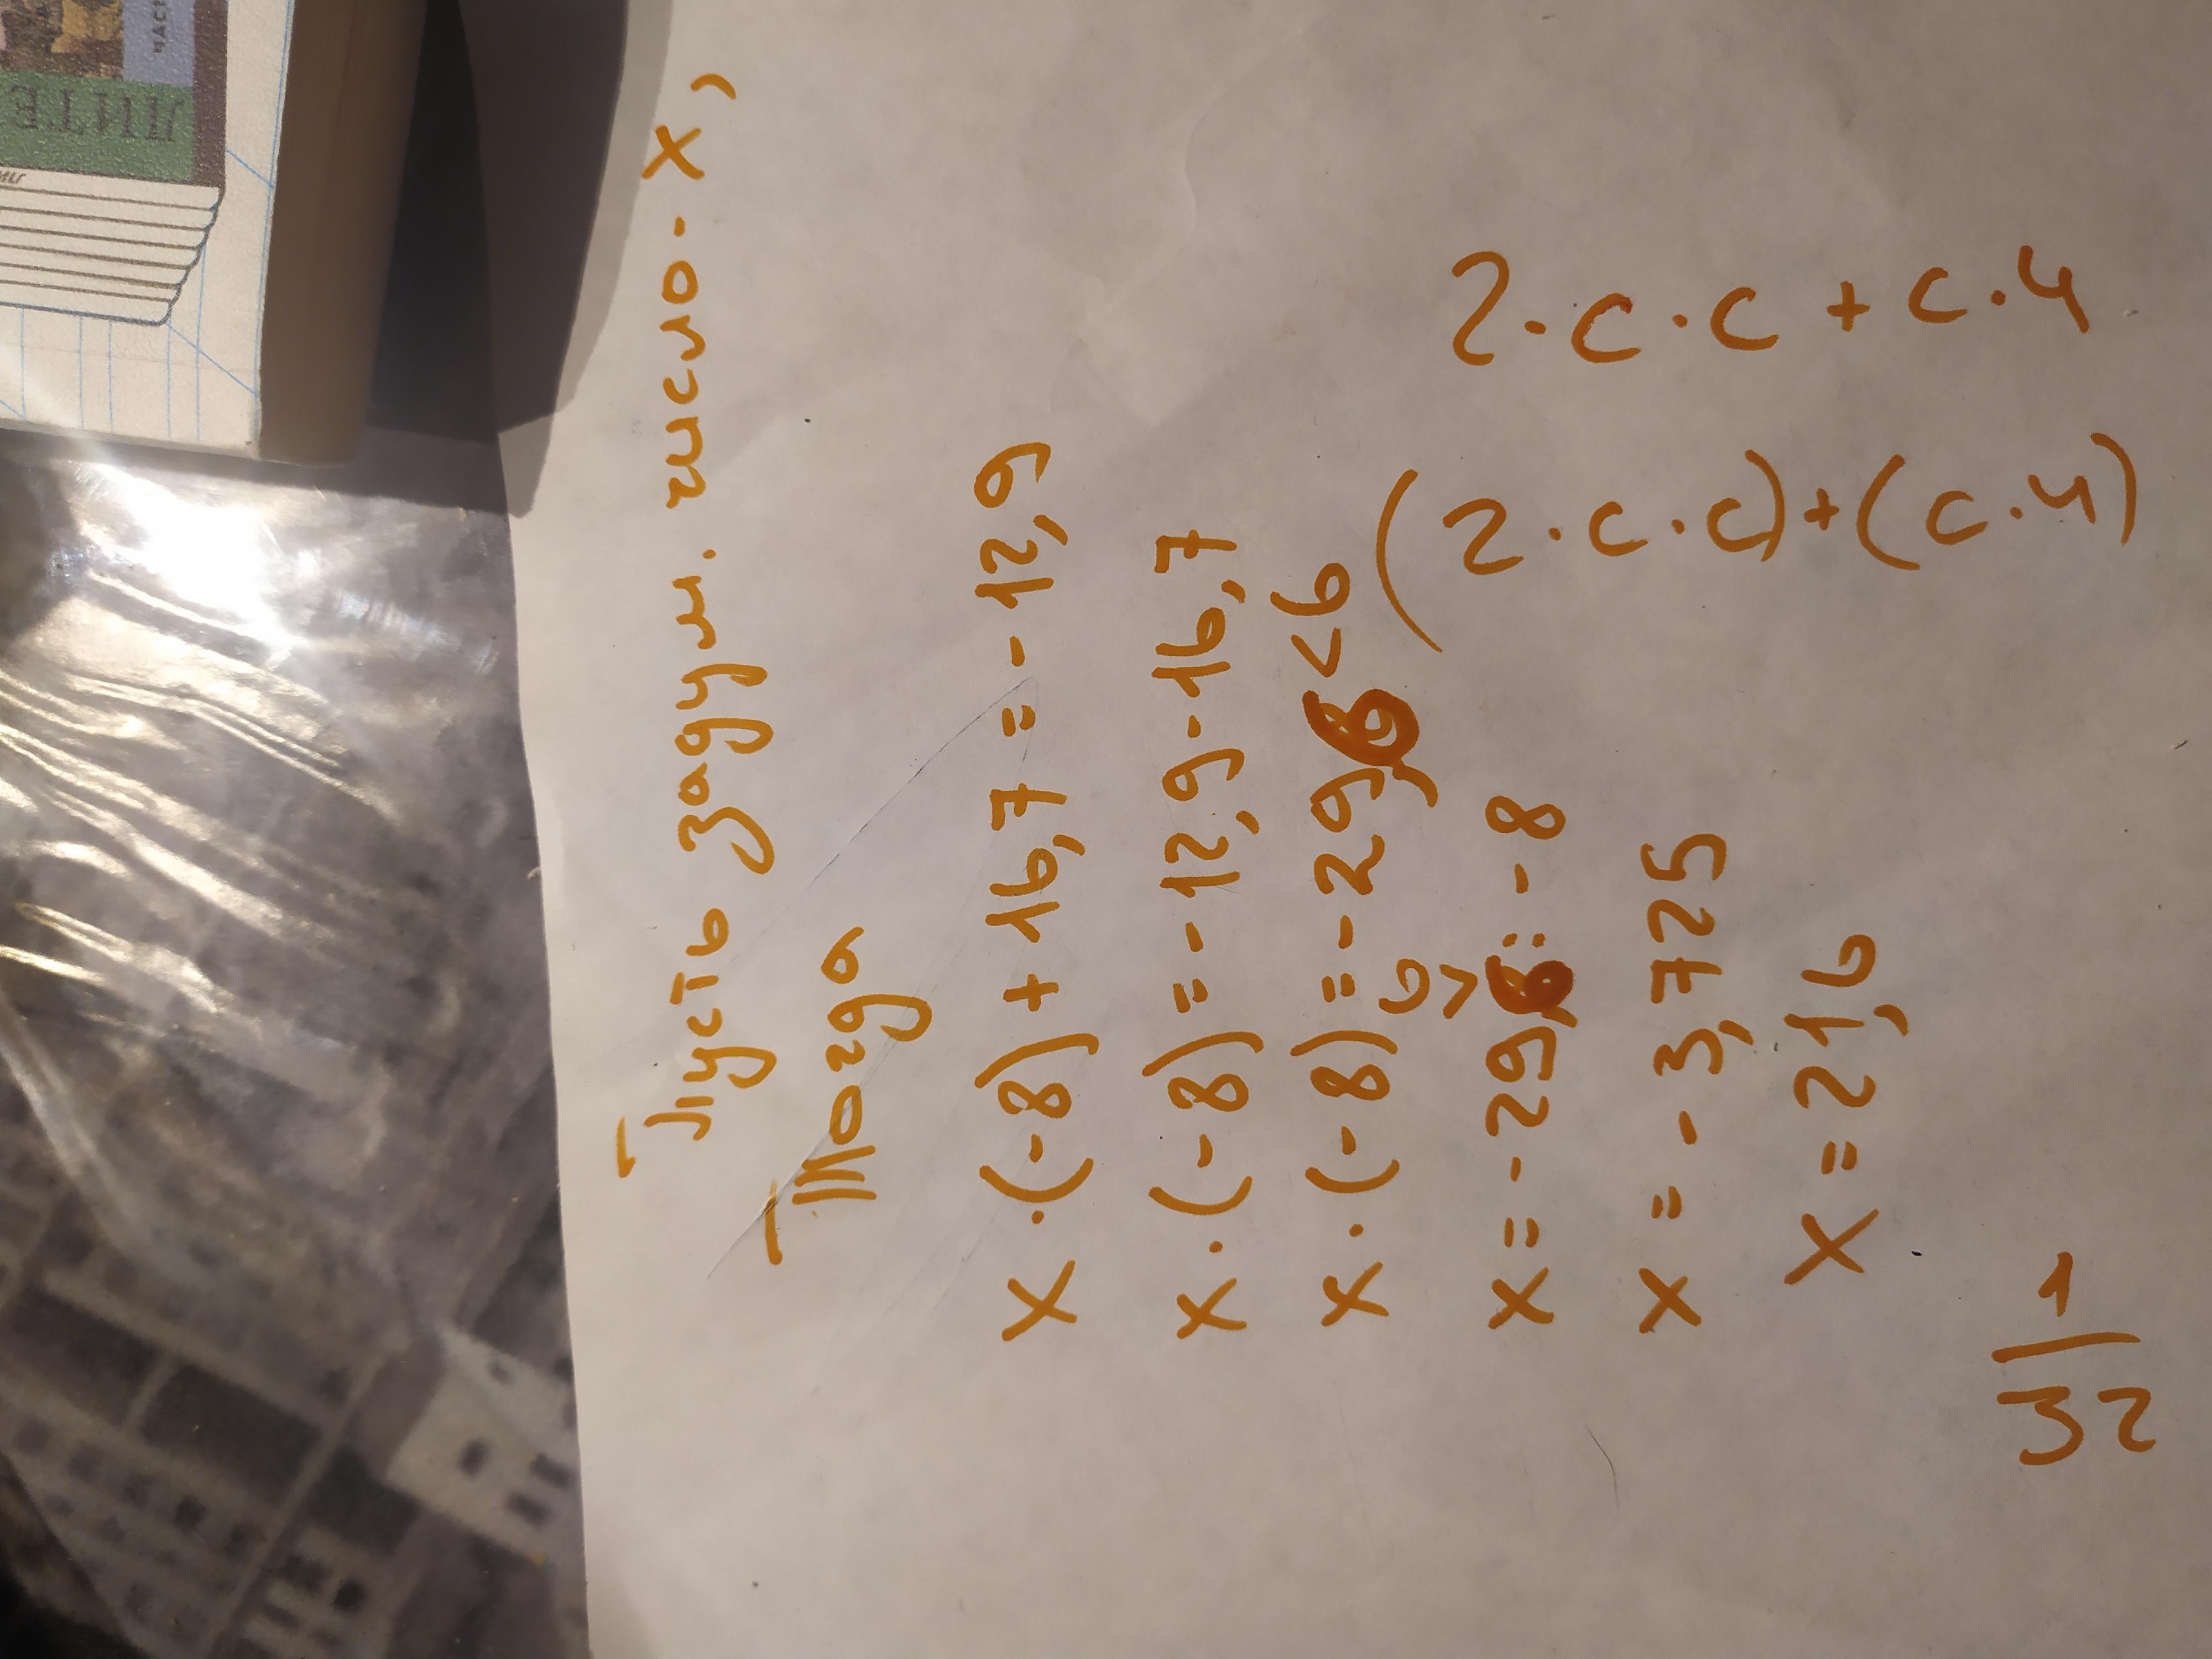 Пусть задум. число - x,
Тогда
x · (-8) + 16,7 = - 12,9
x · (-8) = - 12,9 - 16,7
x · (-8) = - 29,6 < 6
6
v
x = - 29,6 : - 8
x = - 3,725
x = 21,6
2 · c · c + c · 4
(2 · c · c) + (c · 4)
3 | 1
2
ЛИТЕ
ЧАС